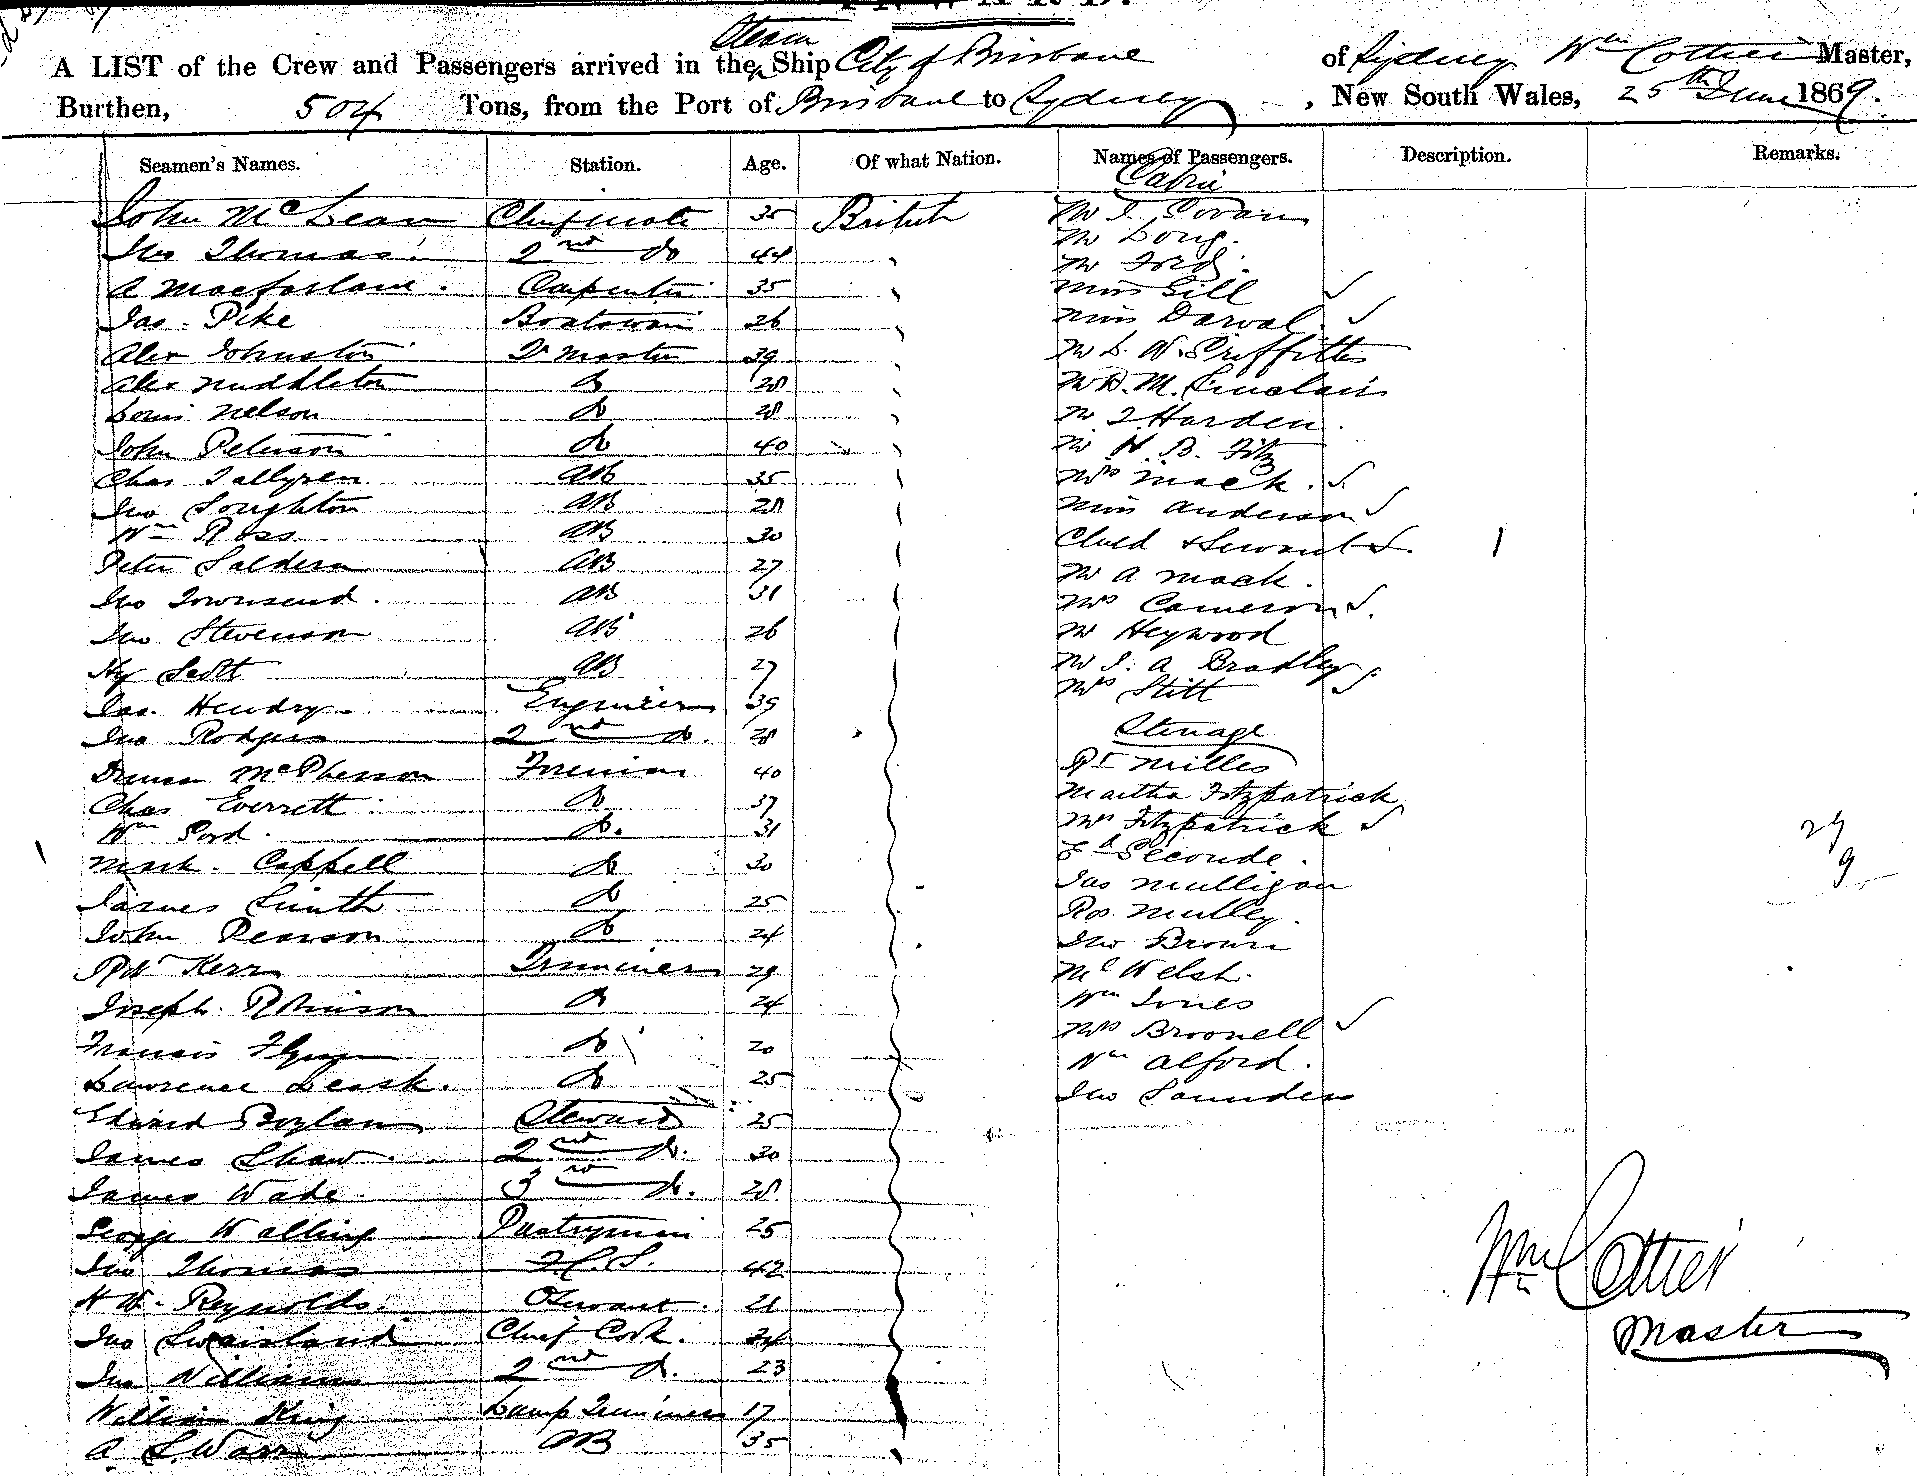 A LIST of the Crew and Passengers arrived in the Steam Ship City of Brisbane of Sydney Wm Cottier Master,
Burthen, 504 Tons, from the Port of Brisbane to Sydney, New South Wales, 25th June 1869.
Seamen's Names. Station. Age. Of what Nation. Names of Passengers. Description. Remarks.
Cabin
John McLean Chief mate 35 British Mr
Jno Thomas 2nd do 44 Mr Long.
A Macfarlane. Carpenter 35 Mr Ford.
Miss Gill
Jas. Pike Boatswain 26 Miss Darval
Alex Johnston Qr Master 39 Mr L. W. Griffiths
Alex Middleton do 28 Mr D. M. Sinclair
Louis Nelson do 28 Mr J Harden.
John Peterson do 40 Mr H. B. Fitz
Chas AB 35 Mrs Mack.
Jno Loughton AB 28 Miss Anderson
Wm Ross AB 30 Child & Servant
Peter AB 27 Mr A Mack.
Jno Townsend. AB 31 Mrs Cameron
Jno Stevenson AB 26 Mr Heywood
Hy Scott AB 27 Mr J. A Bradley
Jas. Hendry Engineer 39 Mrs Stitt
Jno Rodgers 2nd do. 28 Steerage
Duncan McPherson Fireman 40 Rt Milles
Chas Everrett do 37 Martha Fitzpatrick
Wm Ford. do. 31 Mrs Fitzpatrick
Mark. Cappell do 30 Ed Seconde.
James Smith do 25 Jas Mulligan
John Pearson do 24 Ros Mulley.
Jno Brown
Robt Kerr Trimmer 29 Ml Welsh.
Joseph Robinson do 24 Wm Jones
Francis Flynn do 20 Mrs Broonell
Lawrence Leask. do 25 Wm Alford.
Jno Saunders
Edward Boylan Steward 25
James Shaw 2nd do. 30
James Wade 3rd do. 28
George Walling Pantryman 25
Jno Thomas F.C.S. 42
H W. Reynolds. 21
Jno Swaisland Chief Cook. 24
Jno Williams 2nd do. 23
William King Lamp Trimmer 17
A S. Warr AB 35
29
9
Wm Cottier
Master